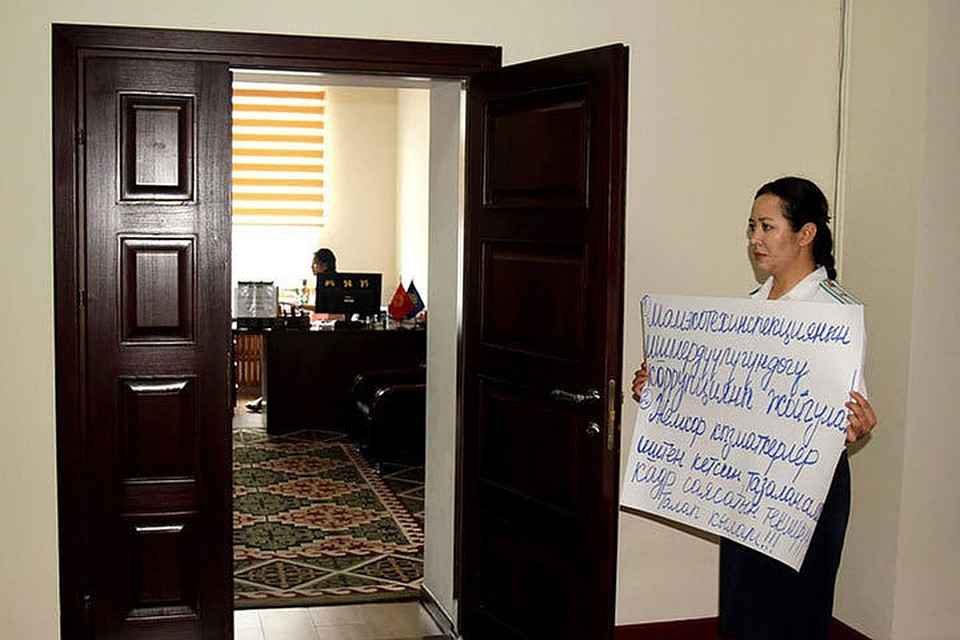 ① Мамэкотехинспекциянын
ишмердүүлүгүндөгү
коррупцияны жойгула
② Жемкор кызматкерлер
иштен кетсин тазалансын
кадр саясатын
Талап кылам!!!